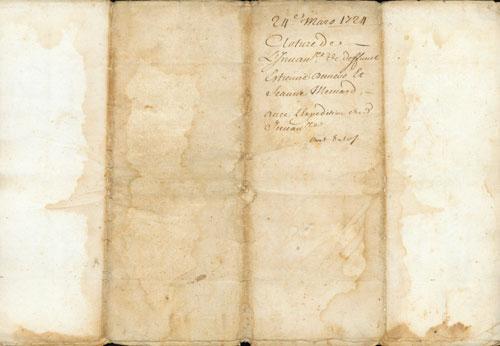 24e Mars 1724
Cloture de
L'Inuanre de deffunt
Estienne et
Jeanne Menard
auec l'expedition dud
Inuanre